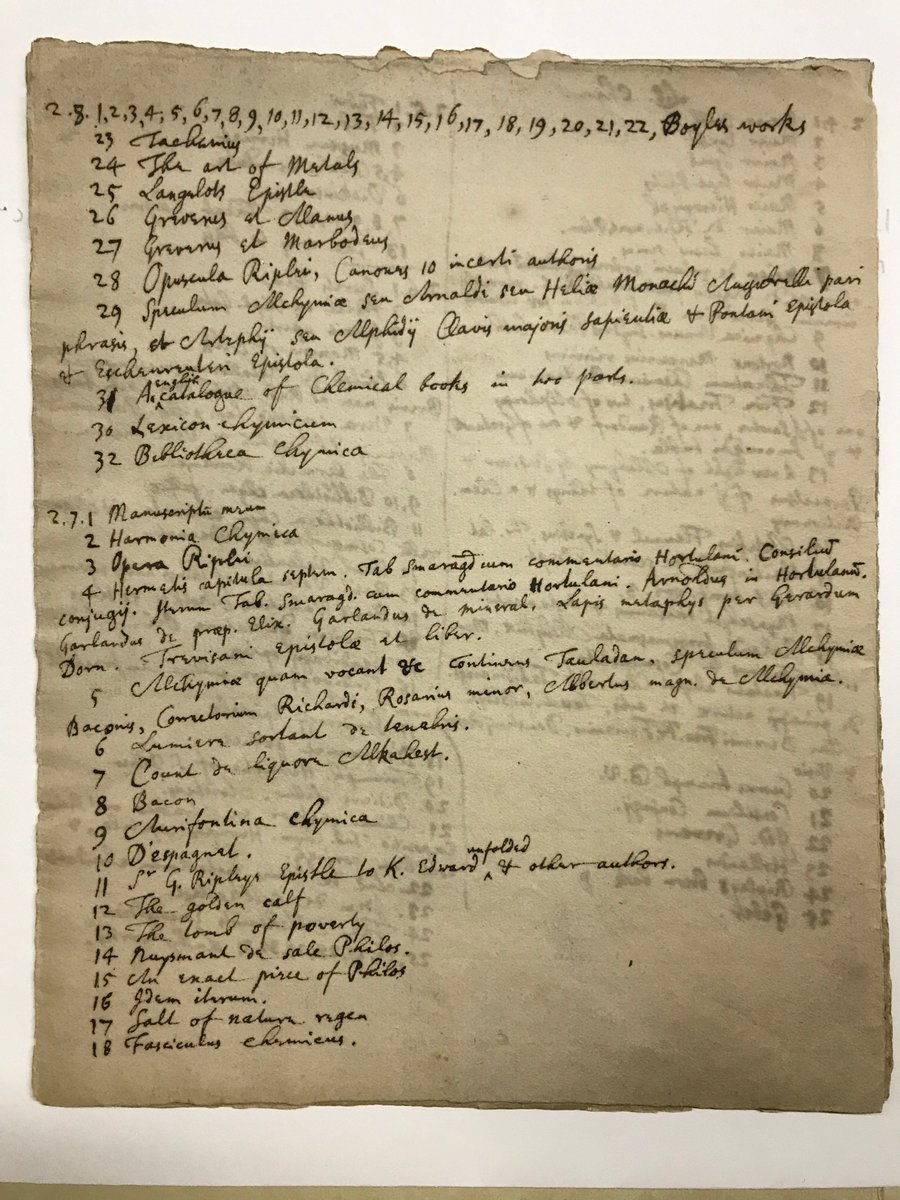 2.8.1,2,3,4,5,6,7,8,9,10,11,12,13,14,15,16,17,18,19,20,21,22, Boyles works
23 Tachenius
24 The art of Metals
25 Langelots Epistle
26 Greverus et Alanus
27 Greverus et Marbodeus
28 Opuscula Riplei, Canones 10 incerti authoris
29 Speculum Alchymiæ seu Arnaldi seu Heliæ Monachi Augurelli pari
phrasis, et Artephij seu Alphidij Clavis majoris sapientiæ & Pontani Epistola
& Eschenreuteri Epistola.
31 A english catalogue of Chemical books in two parts.
30 Lexicon chymicum
32 Bibliotheca Chymica
2.7.1 Manuscriptū
2 Harmonia Chymica
3 Opera Riplei
4 Hermetis capitula septem. Tab Smaragd cum commentario Hortulani. Consiliū
conjugij. Iterum Tab. Smaragd. cum commentario Hortulani. Arnoldus in Hortulanū.
Garlandus de præp. Elix. Garlandus de mineral. Lapis metaphys per Gerardum
Dorn. Trevisani epistolæ et liber.
5 Alchymiæ quam vocant &c continens Tauladan, speculum Alchymiæ
Baconis, Correctorium Richardi, Rosarius minor, Albertus magn. de Alchymia.
6 Lumiere sortant de tenebris.
7 Count de liquore Alkahest.
8 Bacon
9 Aurifontina chymica
10 D'espagnet.
11 Sr G. Ripleys Epistle to K. Edward unfolded & other authors.
12 The golden calf
13 The tomb of poverty
14 Nuysmant de sale Philos.
15 An exact piece of Philos
16 Idem iterum.
17 Salt of nature regen
18 Fasciculus chemicus.